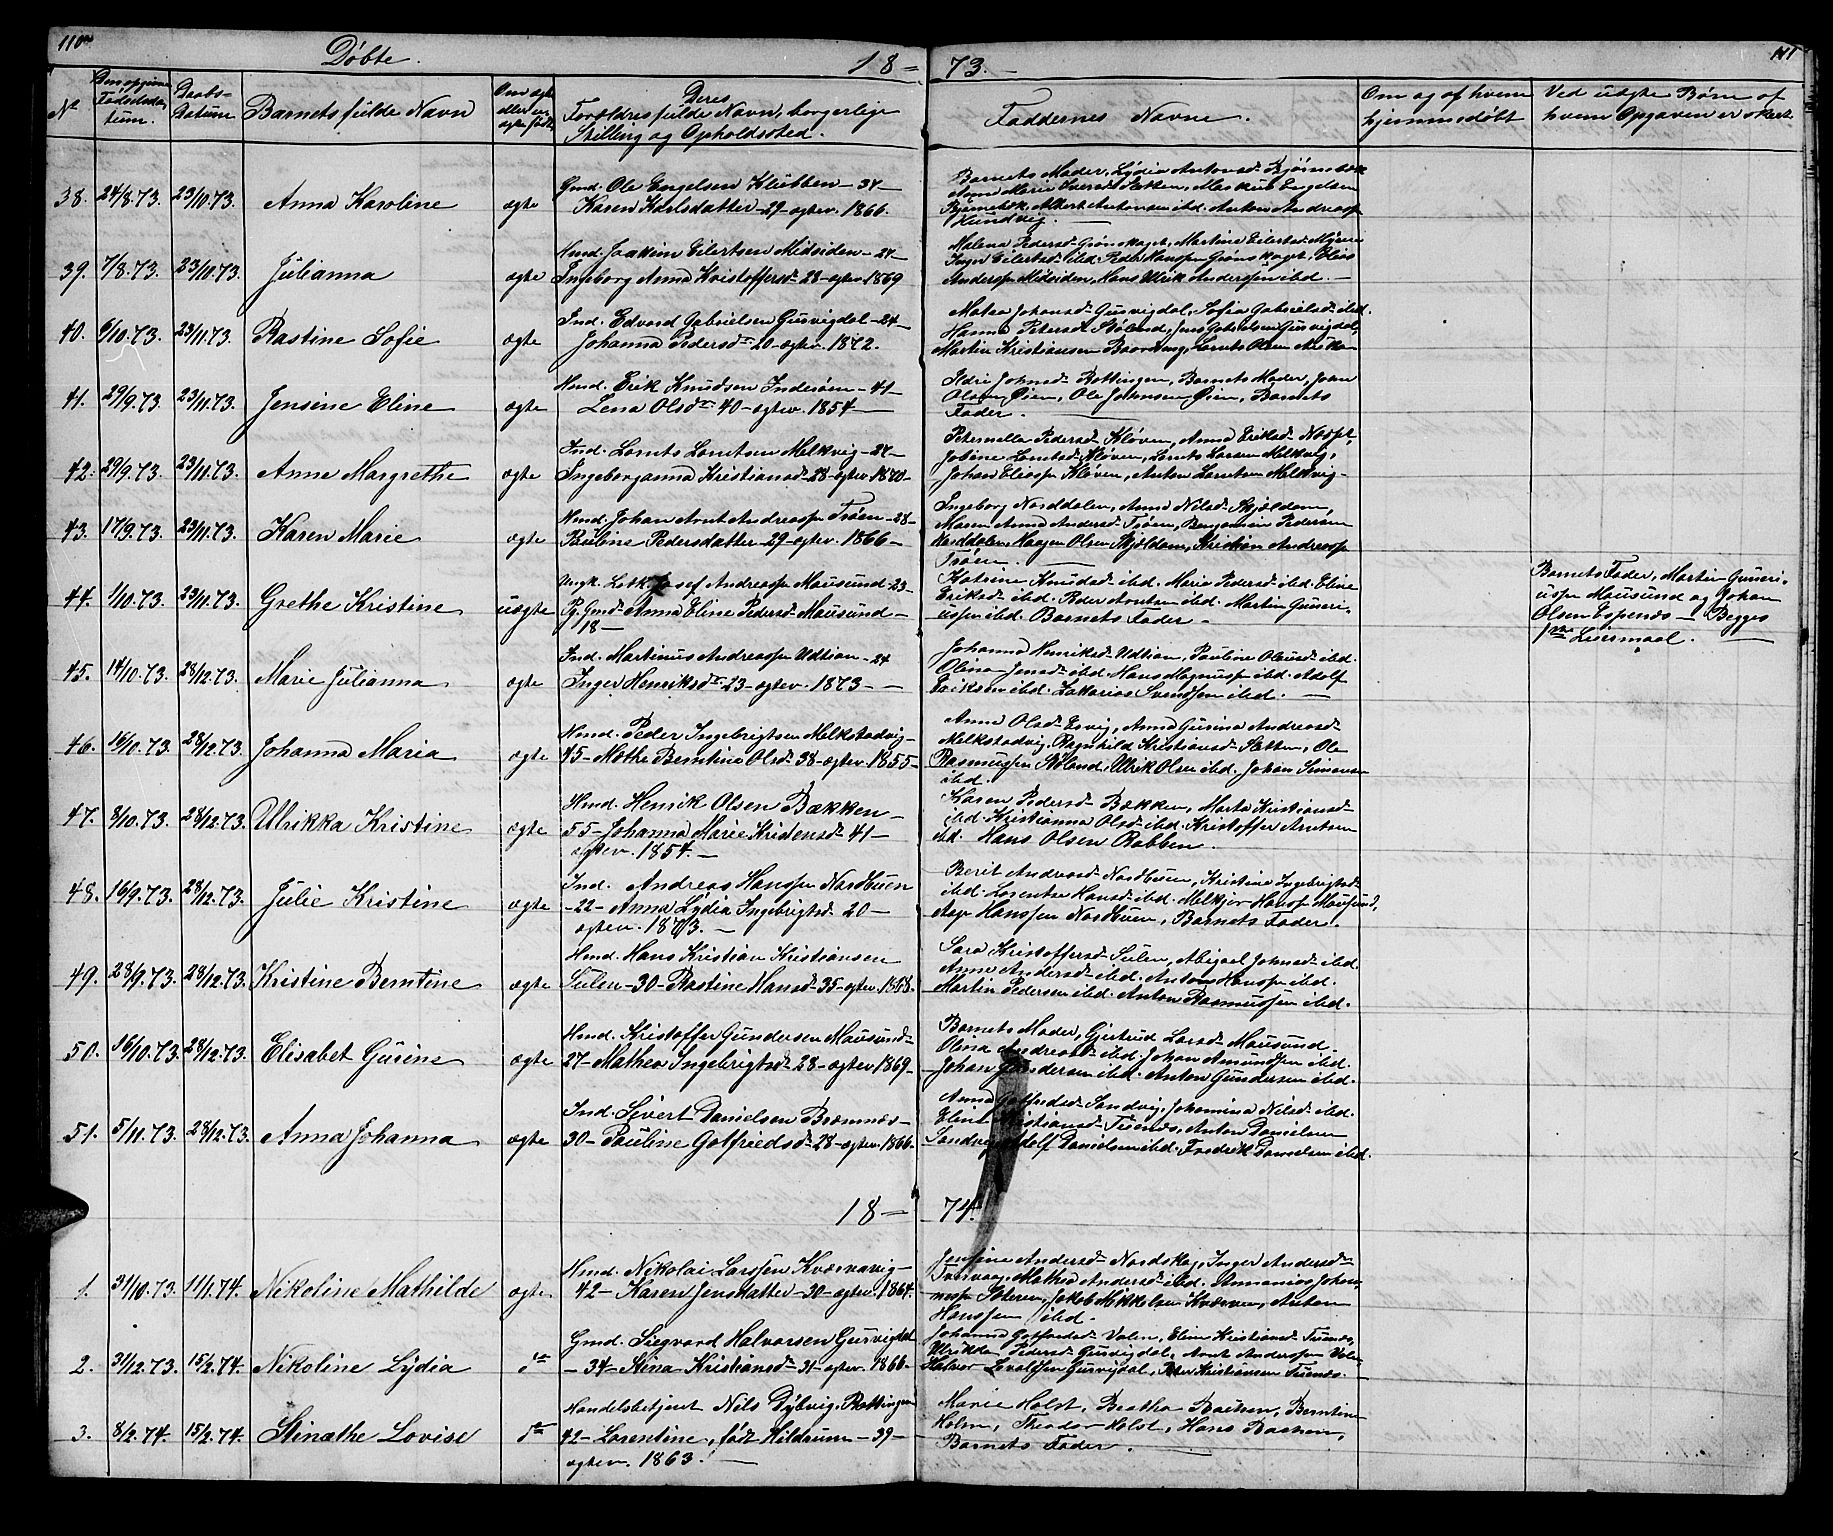 110
Døbte.
18-73.
111
No
Den opgivne Fødselsdatum.
Daabs-Datum
Barnets fulde Navn
Om ægte eller uægte født
Deres Forældres fulde Navn, borgerlige Stilling og Opholdssted.
Faddernes Navne.
Om og af hvem hjemmedøbt
Ved uægte Børn af hvem Opgaven er skeet
38. 24/8.73. 23/10.73. Anna Karoline ægte
Gmd. Ole Engelsen Klubben - 34 -
Karen Karlsdatter - 29 - ægtev. 1866.
Barnets Moder, Lydia Antonsd. Bjørnebæk
Anne Marie Iversd. Sætten, Engelsen
Bjørnebæk, Albert Antonsen ibd. Anton Andreass.
39. 7/8.73. 23/11.73. Julianna ægte
Hmd. Joakim Eilertsen Midsiden - 24 -
Ingeborg Anna Kristoffersd. 28 - ægtev. 1869
Malena Pedersd. Grønskaget, Martine Eilertsd.
Inger Eilertsd. ibd. Peder Hanssen Grønskaget, Elias
Anderssen Midsiden, Hans Ulrik Anderssen ibd. -
40. 6/10.73. 23/11.73. Rastine Sofie ægte
Ind. Edvard Gabrielsen Gurvigdal - 24 -
Johanna Pedersdr. 20 - ægtev. 1872.
Matea Johansd. Gurvigdal, Sofia Gabrielsd. ibd.
Hanna Petersd. Støland, Jens Gabrielsen Gurvigdal,
Martin Kristiansen
41. 29/9.73. 23/11.73. Jensine Eline ægte
Hmd. Erik Knudsen Inderøen - 41 -
Lena Olsdr. 40 - ægtev. 1854 -
Ildri Johnsd. Rottingen, Barnets Moder, John
Olsen Øien, Ole Johnsen Øien, Barnets
Fader.
42. 29/9.73. 23/11.73. Anne Margrethe ægte
Ind. Lornts Lorntsen Melkvig - 24 -
Ingeborganna Kristiansd. 28 - ægtev. 1870 -
Peternella Pedersd. Kløven, Anna Eriksd. Næsset,
Jobine Lorntsd. Kløven, Lornts Larsen Melkvig,
Johan Eliass. Kløven, Anton Lorntsen Melkvig -
43. 17/9.73. 23/11.73. Karen Marie ægte
Hmd. Johan Arnt Andreass. Trøen - 28 -
Pauline Pedersdatter - 29 - ægtev. 1866 -
Ingeborg Norddalen, Anne Nilsd. Skjældam,
Maren Anna Andersd. Trøen, Benjamin Pedersen
Norddalen, Haagen Olsen Skjældam, Kristian Andreass.
Trøen.
44. 1/10.73. 23/11.73. Grethe Kristine uægte
Ungk. Josef Andreass. Mausund - 23 -
Pg. Gmd. Anna Eline Pedersd. Mausund -
18 -
Katrine Knudsd. ibd. Maria Pedersd. ibd. Eline
Eriksd. ibd. Peder Arntsen ibd. Martin Guneri-
ussen ibd. Barnets Fader -
Barnets Fader, Martin Guneri-
uss. Mausund og Johan
Olsen Espenæs - Begges
1ste Leiermaal.
45. 14/10.73. 28/12.73. Marie Julianna ægte
Ind. Martinus Andreass. Udtian - 24
Inger Henriksdr. 23 - ægtev. 1873 -
Johanna Henriksd. Udtian, Pauline Olausd. ibd.
Olina Jensd. ibd. Hans Magnuss. ibd. Adolf
Eriksen ibd. Zakarias Svendsen ibd. -
46. 16/10.73. 28/12.73. Johanna Maria ægte
Hmd. Peder Ingebrigtsen Melkstadvig -
45 - Mathe Berntine Olsd. 38 - ægtev. 1855 -
Anna Olsd. Esvig, Anna Gurina Andreasd.
Melkstadvig, Ragnhild Kristiansd. Sætten, Ole
Rasmussen Støland, Ulrik Olsen ibd. Johan Simonsen
ibd.
47. 8/10.73. 28/12.73. Ulrikka Kristine ægte
Hmd. Henrik Olsen Bækken -
55 - Johanna Marie Kristensd. 41 -
ægtev. 1854. -
Karen Pedersd. Bækken, Marta Kristiansd.
ibd. Kristianna Olsd. ibd. Kristoffer Arntsen
ibd. Hans Olsen Rabben.
48. 16/9.73. 28/12.73. Julie Kristine ægte
Ind. Andreas Hanss. Nordbuen
- 22 - Anna Lydia Ingebrigtsd. 20 -
ægtev. 1873. -
Berit Nordbuen, Kristine Ingebrigtsd.
ibd. Lorentse Hansd. ibd. Melkjor Hanss. Mausund,
Hanssen Nordbuen, Barnets Fader.
49. 28/9.73. 28/12.73. Kristine Berntine ægte
Hmd. Hans Kristian Kristiansen
Sulen - 30 - Rastine Hansd. 35 - ægtev. 1858.
Sara Kristoffersd. Sulen, Abigael Johnsd. ibd.
Anne Andersd. ibd. Anton Hanss. ibd.
Martin Pedersen ibd. Anton Rasmussen ibd.
50. 16/10.73. 28/12.73. Elisabet Gurine ægte
Hmd. Kristoffer Gundersen Mausund -
27 - Mathea Ingebrigtsd. 28 - ægtev. 1869 -
Barnets Moder, Gjertrud Larsd. Mausund.
Olina Andreasd. ibd. Johan Amundsen ibd.
Johan Gundersen ibd. Anton Gundersen ibd.
51. 5/11.73. 28/12.73. Anna Johanna ægte
Ind. Sivert Danielsen Bremnæs -
30 - Pauline Gotfriedsd. 28 - ægtev. 1866.
Anna Sandvig, Johanna Nilsd. ibd.
Eline Kristiansd. Tuenæs, Anton Danielsen
Sandvig, Adolf Danielsen ibd. Fredrik Danielsen ibd.
18-74.
1. 31/10.73. 11/1.74. Nikoline Mathilde ægte
Hmd. Nikolai Larssen Kværnvig -
42 - Karen Jensdatter - 30 - ægtev. 1864.
Jensine Andersd. Nordskag, Inger Andersd.
Mathea Andersd. ibd. Annanias Johan-
ness. Jakob Mikkelsen Anton
Hanssen ibd.
2. 31/12.73. 15/2.74. Nikoline Lydia dto
Gmd. Siegvard Halvorsen Gurvigdal
- 34 - Stina Kristiansd. 31 - ægtev. 1866 -
Johanna Valen, Eline Kristiansd. Tuenæs,
Ulrikke Pedersd. Gurvigdal, Arnt Anderssen Valen
Halvor Gurvigdal, Peter Kristiansen Tuenæs.
3. 8/2.74. 15/2.74. Stinathe Lovise dto
Handelsbetjent Nils Dybvig, Rottingen
42 - Lorentine, født Hildrum - 39 -
ægtev. 1863. -
Marie Holst, Beatha Bachen, Berntine
Holm, Theodor Holst, Hans Bachen,
Barnets Fader.